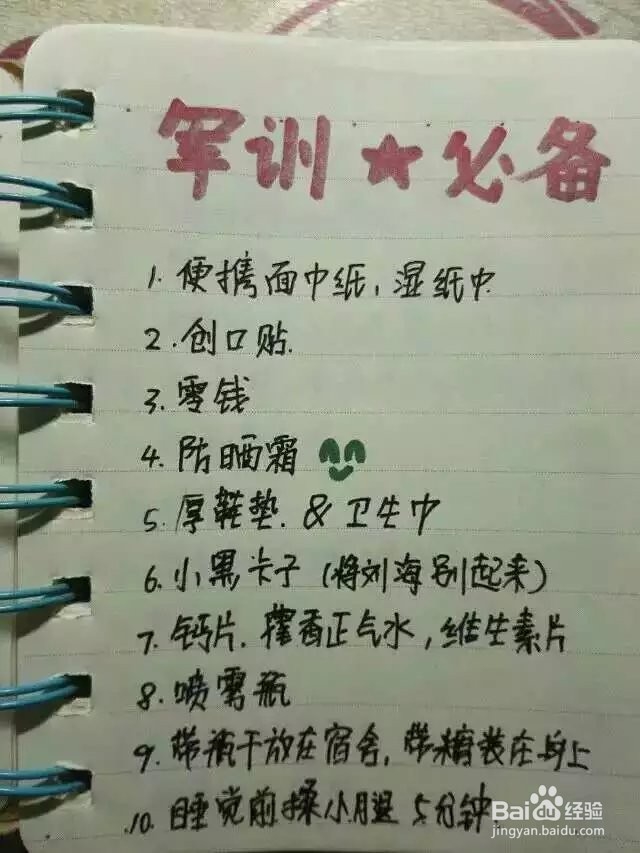 军训★必备
1. 便携面巾纸, 湿纸巾.
2. 创口贴.
3. 零钱
4. 防晒霜
5. 厚鞋垫. & 卫生巾
6. 小黑卡子 (将刘海别起来)
7. 钙片. 藿香正气水, 维生素片
8. 喷雾瓶
9. 带瓶干放在宿舍, 带糖装在身上
10. 睡觉前揉小腿 5分钟.
Baidu 经验
jingyan.baidu.com